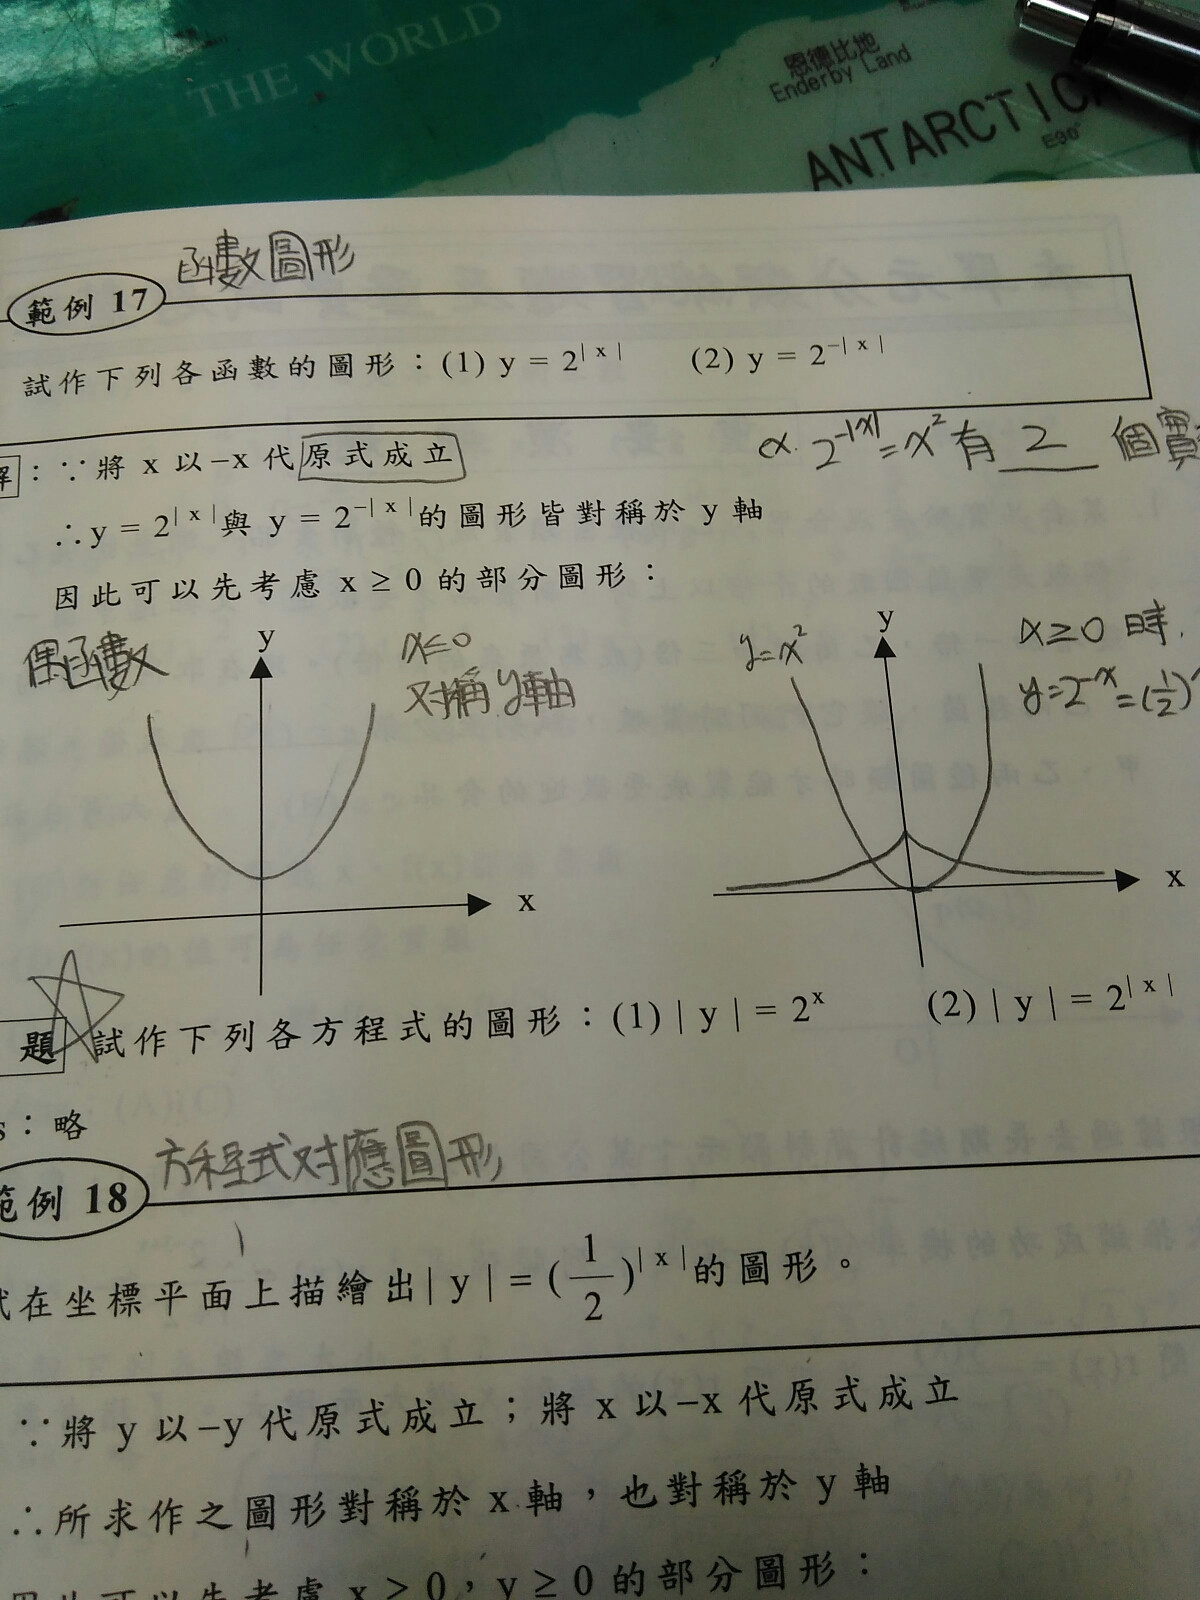 THE WORLD
恩德比地
Enderby Land
ANTARCTICA
E90°
函數圖形
範例 17
試作下列各函數的圖形：(1) y = 2^{|x|} (2) y = 2^{-|x|}
解：∵將 x 以-x 代原式成立
ex. 2^{-|x|} = x² 有 2 個實
∴y = 2^{|x|}與 y = 2^{-|x|}的圖形皆對稱於 y 軸
因此可以先考慮 x ≥ 0 的部分圖形：
偶函數
y
x≤0
对稱 y軸
x
y=x²
y
x≥0 時.
y=2^{-x}=(1/2)
x
題 試作下列各方程式的圖形：(1) | y | = 2^x (2) | y | = 2^{|x|}
s：略
方程式对應圖形
範例 18
試在坐標平面上描繪出| y | = (1/2)^{|x|}的圖形。
∵將 y 以-y 代原式成立；將 x 以-x 代原式成立
∴所求作之圖形對稱於 x 軸，也對稱於 y 軸
因此可以先考慮 x ≥ 0，y ≥ 0 的部分圖形：